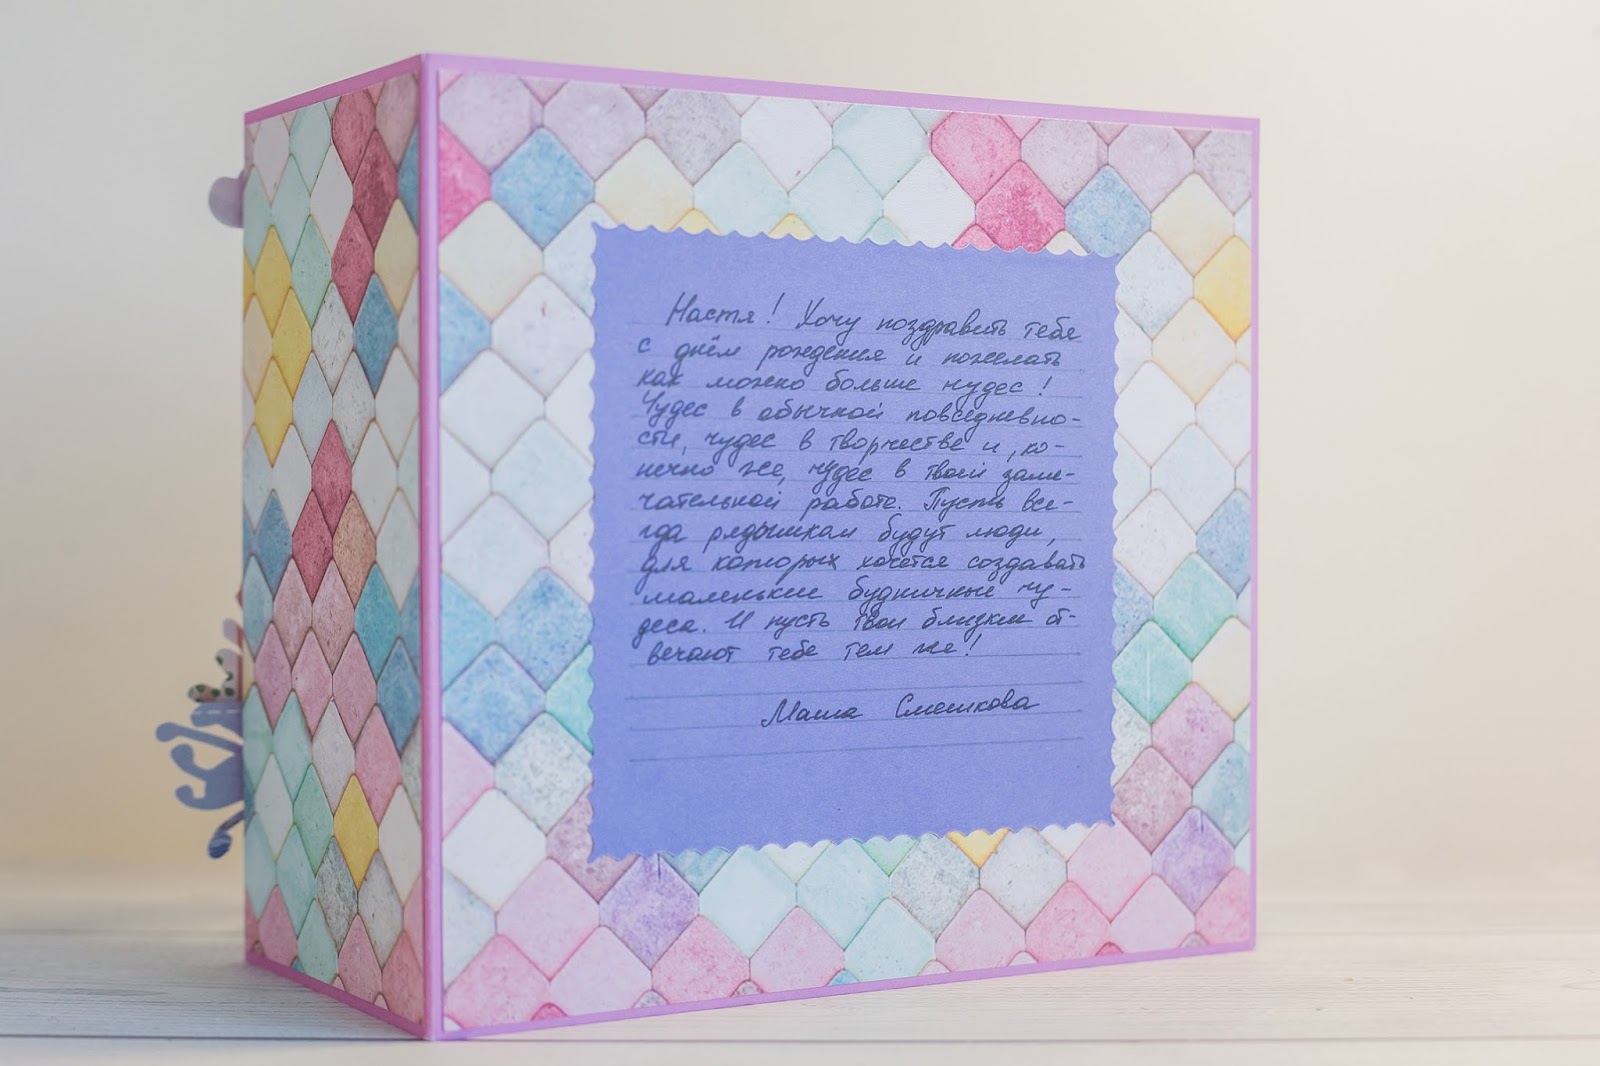 Настя! Хочу поздравить тебя
с днём рождения и пожелать
как можно больше чудес!
Чудес в обычной повседневно-
сти, чудес в творчестве и, ко-
нечно же, чудес в твоей заме-
чательной работе. Пусть все-
гда рядышком будут люди,
для которых хочется создавать
маленькие будничные чу-
деса. И пусть твои близкие от-
вечают тебе тем же!
Маша Смешкова